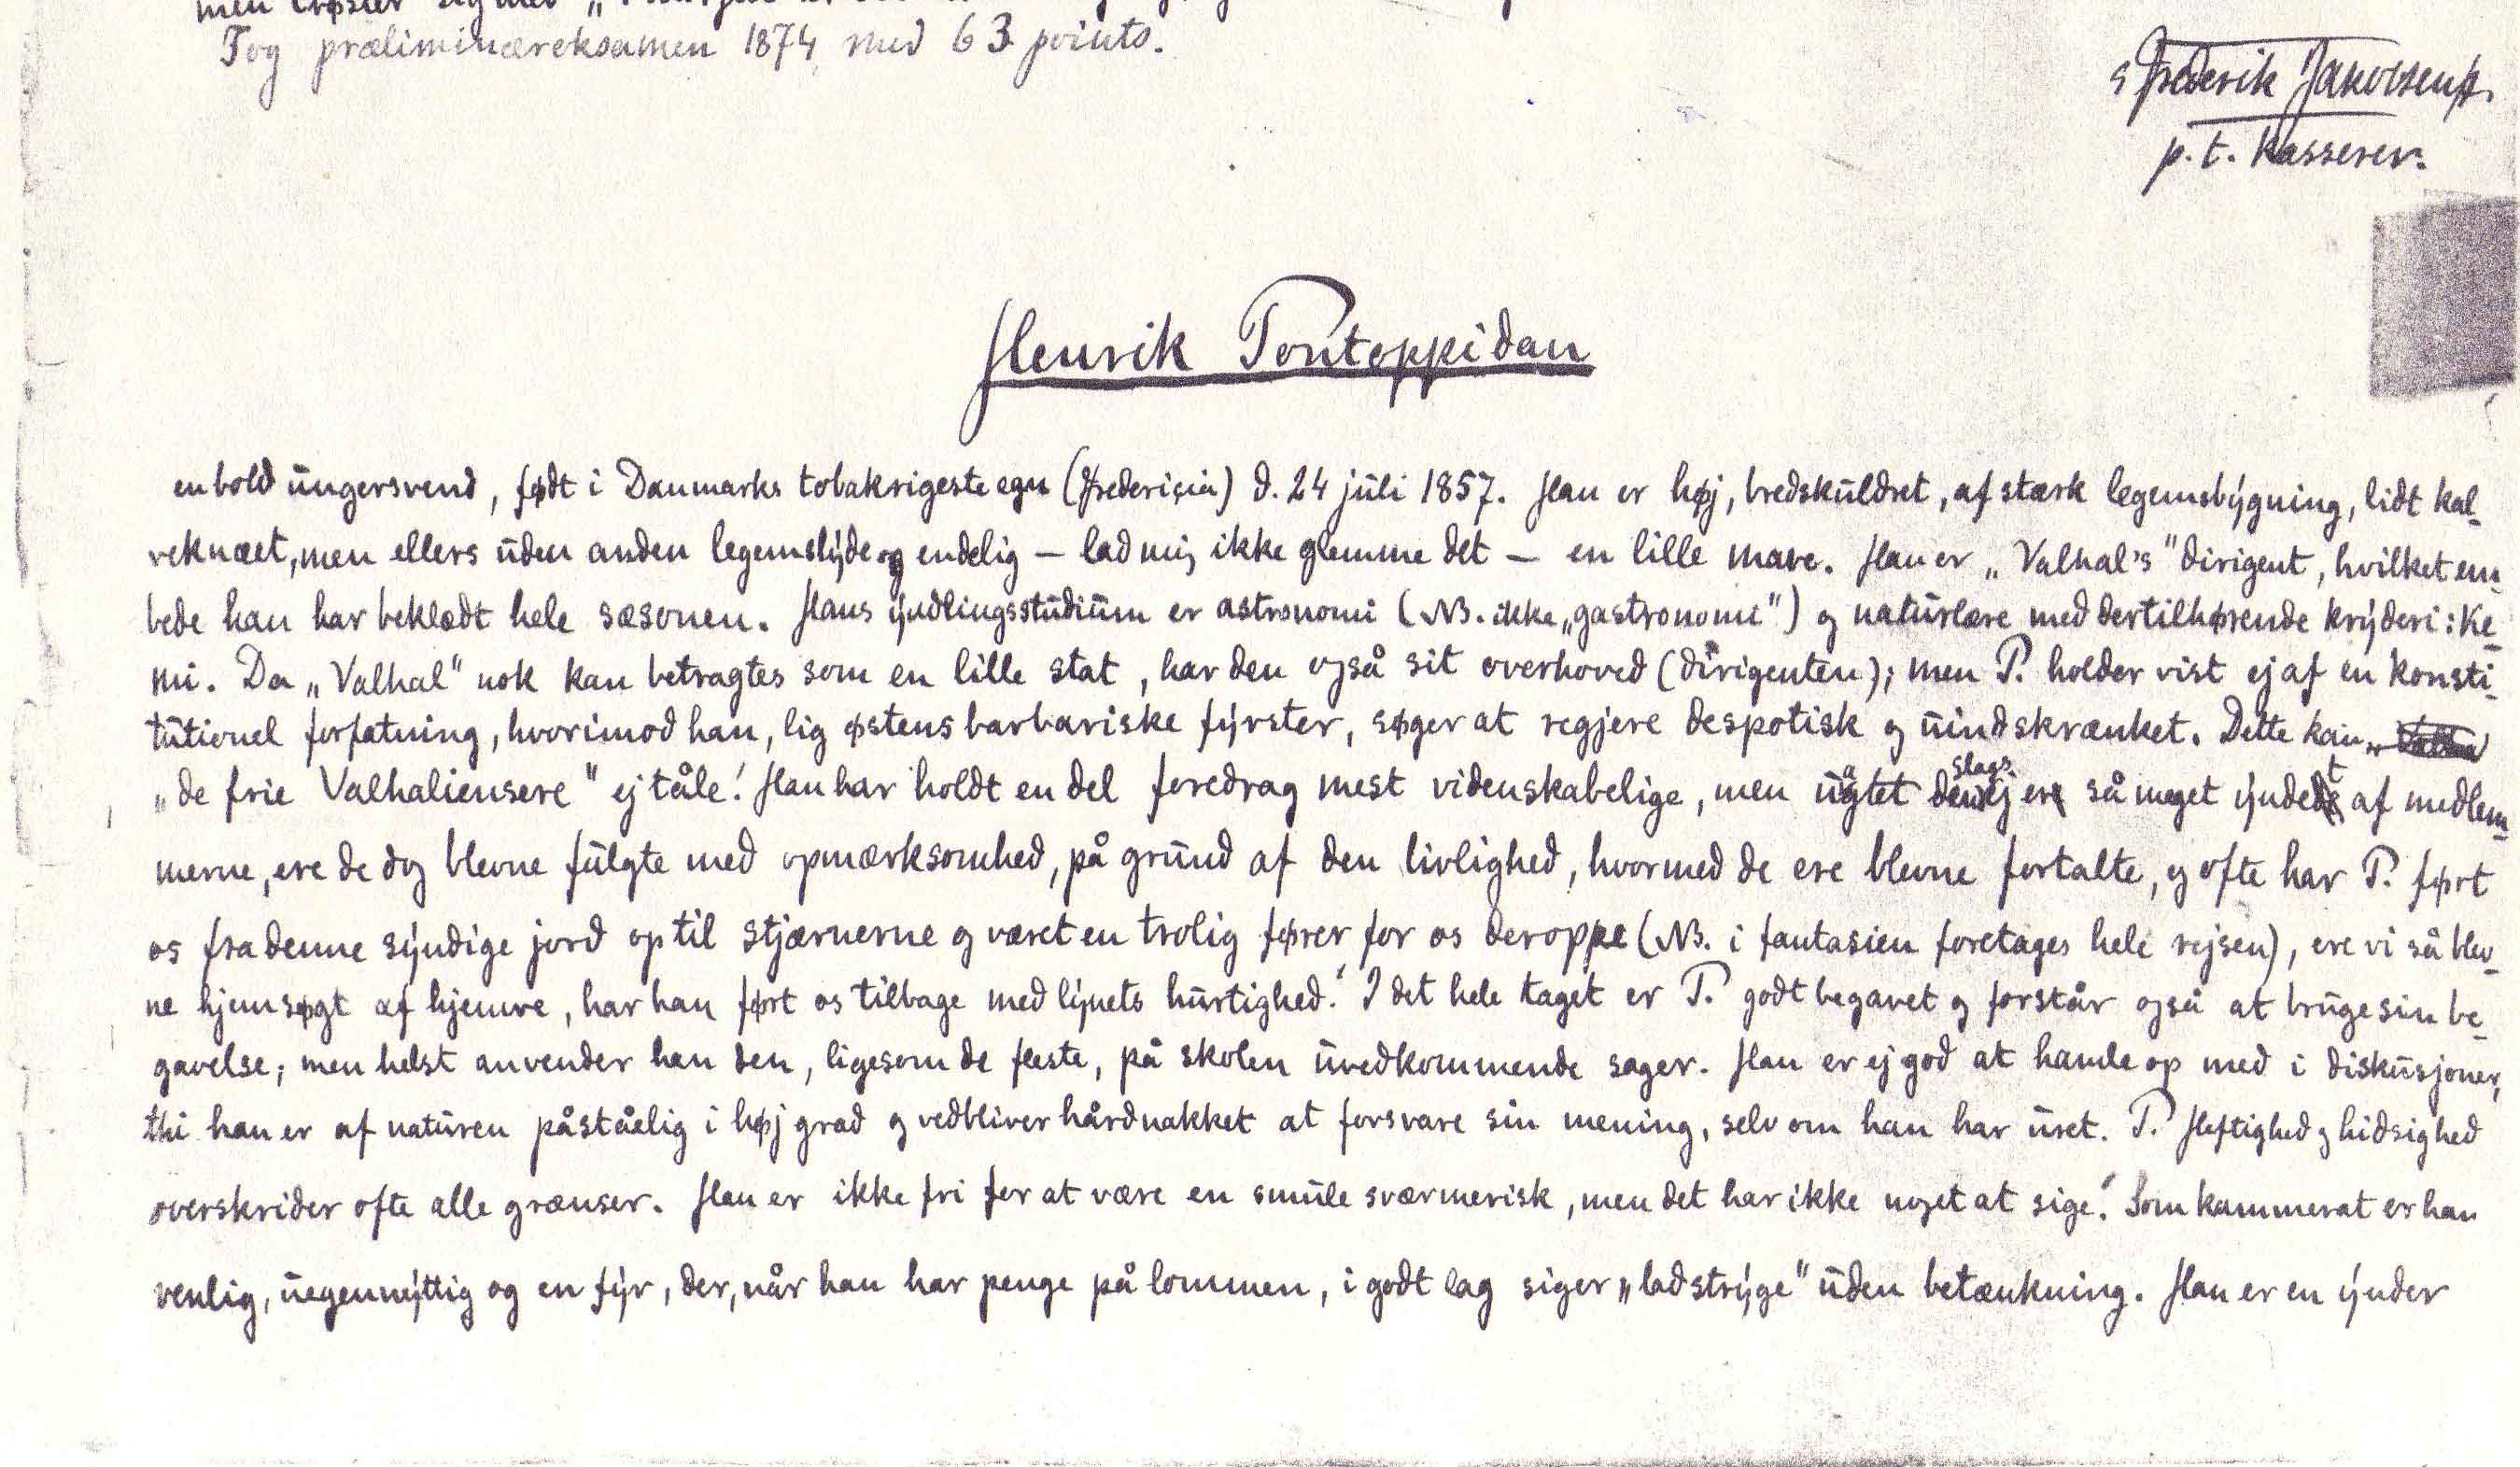 men trøster sig med „
Tog præliminæreksamen 1874 med 63 points.
Frederik Jakobsen
p. t. kasserer.
Henrik Pontoppidan
en bold ungersvend, født i Danmarks tobakrigeste egn (Fredericia) d. 24 juli 1857. Han er høj, bredskuldret, af stærk legemsbygning, lidt kal-
veknæet, men ellers uden anden legemslyde og endelig – lad mig ikke glemme det – en lille mave. Han er „Valhal's" dirigent, hvilket em-
bede han har beklædt hele sæsonen. Hans yndlingsstudium er astronomi (NB. ikke „gastronomi") og naturlære med dertilhørende kryderi: ke-
mi. Da „Valhal" nok kan betragtes som en lille stat, har den også sit overhoved (dirigenten); men P. holder vist ej af en konsti-
tutionel forfatning, hvorimod han, lig østens barbariske fyrster, søger at regjere despotisk og uindskrænket. Dette kan
„de frie Valhaliensere" ej tåle! Han har holdt en del foredrag mest videnskabelige, men uagtet den slags ej er så meget yndet af medlem-
merne, ere de dog blevne fulgte med opmærksomhed, på grund af den livlighed, hvormed de ere blevne fortalte, og ofte har P. ført
os fra denne syndige jord op til stjærnerne og været en trolig fører for os deroppe (NB. i fantasien foretages hele rejsen), ere vi så blev-
ne hjemsøgt af hjemve, har han ført os tilbage med lynets hurtighed! I det hele taget er P. godt begavet og forstår også at bruge sin be-
gavelse; men helst anvender han den, ligesom de fleste, på skolen uvedkommende sager. Han er ej god at hamle op med i diskusjoner,
thi han er af naturen påståelig i høj grad og vedbliver hårdnakket at forsvare sin mening, selv om han har uret. P. Heftighed og hidsighed
overskrider ofte alle grænser. Han er ikke fri for at være en smule sværmerisk, men det har ikke noget at sige! Som kammerat er han
venlig, uegennyttig og en fyr, der, når han har penge på lommen, i godt lag siger „lad stryge" uden betænkning. Han er en ynder